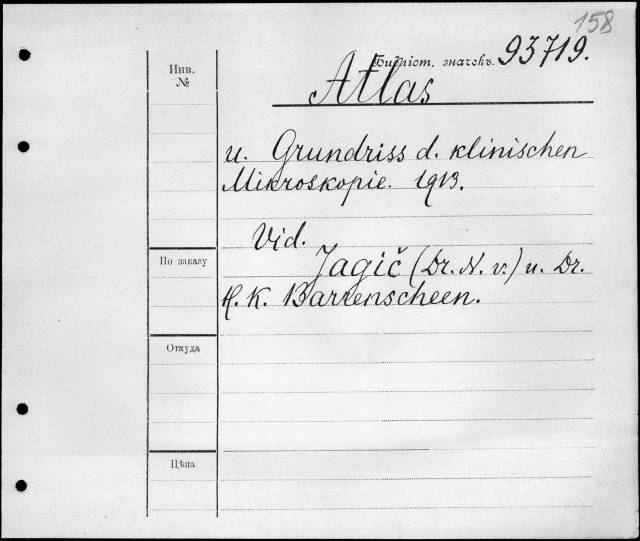 158
Библіот. значекъ. 93719.
Инв.
№
Atlas
u. Grundriss d. klinischen
Mikroskopie. 1913.
Vid.
По заказу
Jagič (Dr. N. v.) u. Dr.
H. K. Barrenscheen.
Откуда
Цѣна